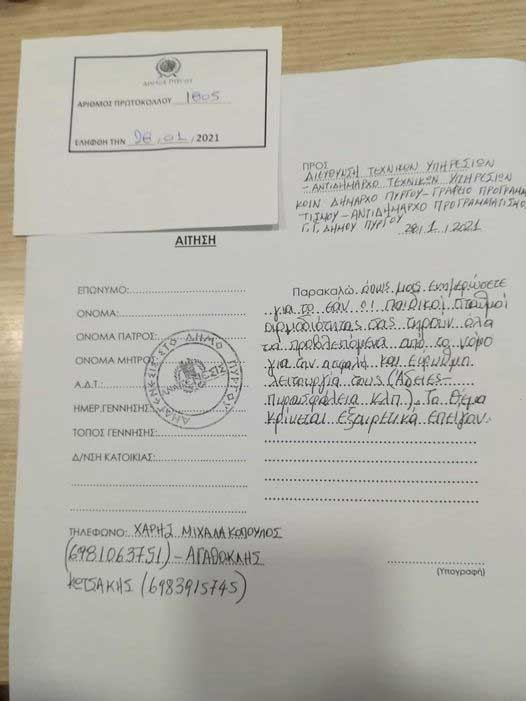 ΔΗΜΟΣ ΠΥΡΓΟΥ
ΑΡΙΘΜΟΣ ΠΡΩΤΟΚΟΛΛΟΥ 1805
ΕΛΗΦΘΗ ΤΗΝ 28, 01, 2021
ΠΡΟΣ
ΔΙΕΥΘΥΝΣΗ ΤΕΧΝΙΚΩΝ ΥΠΗΡΕΣΙΩΝ
-ΑΝΤΙΔΗΜΑΡΧΟ ΤΕΧΝΙΚΩΝ ΥΠΗΡΕΣΙΩΝ
ΚΟΙΝ ΔΗΜΑΡΧΟ ΠΥΡΓΟΥ-ΓΡΑΦΕΙΟ ΠΡΟΓΡΑΜΜΑ
ΤΙΣΜΟΥ-ΑΝΤΙΔΗΜΑΡΧΟ ΠΡΟΓΡΑΜΜΑΤΙΣΜΟ
Γ.Γ. ΔΗΜΟΥ ΠΥΡΓΟΥ
28,1,2021
ΑΙΤΗΣΗ
ΕΠΩΝΥΜΟ:
ΟΝΟΜΑ:
ΟΝΟΜΑ ΠΑΤΡΟΣ:
ΟΝΟΜΑ ΜΗΤΡΟΣ:
Α.Δ.Τ.:
ΗΜΕΡ.ΓΕΝΝΗΣΗΣ:
ΤΟΠΟΣ ΓΕΝΝΗΣΗΣ:
Δ/ΝΣΗ ΚΑΤΟΙΚΙΑΣ:
ΔΗΜΟ ΠΥΡΓΟΥ
Παρακαλώ όπως μας ενημερώσετε
για το εάν οι παιδικοί σταθμοί
αρμοδιότητας σας τηρούν όλα
τα προβλεπόμενα από το νόμο
για την ασφαλή και εύρυθμη
λειτουργία τους (Άδειες-
πυρασφάλεια κλπ). Το θέμα
κρίνεται εξαιρετικά επείγον.
ΤΗΛΕΦΩΝΟ: ΧΑΡΗΣ ΜΙΧΑΛΑΚΟΠΟΥΛΟΣ
(6981063751)-ΑΓΑΘΟΚΛΗΣ
ΚΩΤΣΑΚΗΣ (6983915745)
(Υπογραφή)